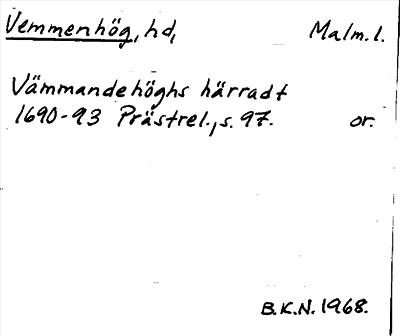 Vemmenhög, hd, Malm. l.
Vämmandehöghs härradt
1690-93 Prästrel., s. 97. or.
B.K.N. 1968.